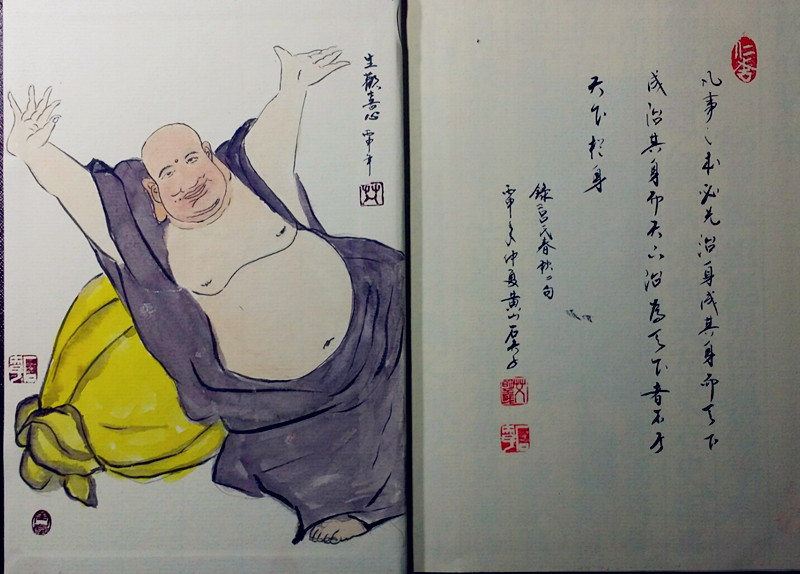 凡事之本必先治身成其身而天下
成治其身而天下治為天下者不於
天下於身
錄呂氏春秋二句
丙申仲夏黄山石
生歡喜心
丙申年